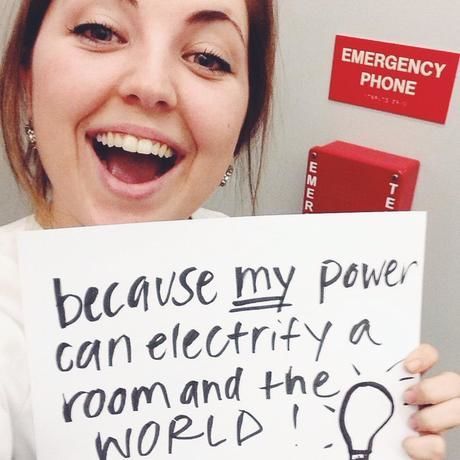 EMERGENCY
PHONE
because my power
can electrify a
room and the
WORLD!